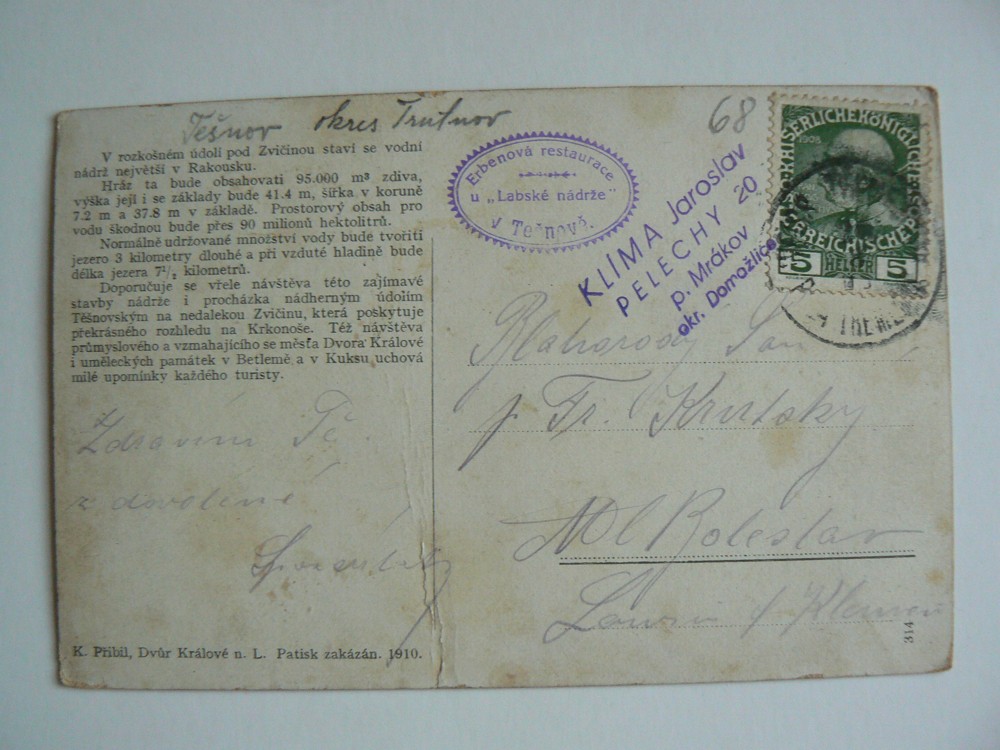 Těšnov okres Trutnov
68
V rozkošném údolí pod Zvičinou staví se vodní
nádrž největší v Rakousku.
Hráz ta bude obsahovati 95.000 m³ zdiva,
výška její i se základy bude 41.4 m, šířka v koruně
7.2 m a 37.8 m v základě. Prostorový obsah pro
vodu škodnou bude přes 90 milionů hektolitrů.
Normálně udržované množství vody bude tvořiti
jezero 3 kilometry dlouhé a při vzduté hladině bude
délka jezera 7½ kilometrů.
Doporučuje se vřele návštěva této zajímavé
stavby nádrže i procházka nádherným údolím
Těšnovským na nedalekou Zvičinu, která poskytuje
překrásného rozhledu na Krkonoše. Též návštěva
průmyslového a vzmahajícího se města Dvora Králové
i uměleckých památek v Betlemě a v Kuksu uchová
milé upomínky každého turisty.
Zdravím Tě
z dovolené
K. Přibil, Dvůr Králové n. L. Patisk zakázán. 1910.
Erbenova restaurace
u „Labské nádrže"
v Těšnově.
KLÍMA Jaroslav
PELECHY 20
p. Mrákov
okr. Domažlice
1908
5 HELLER 5
Blahorodý Pan
p. Fr.
Ml Boleslav
314